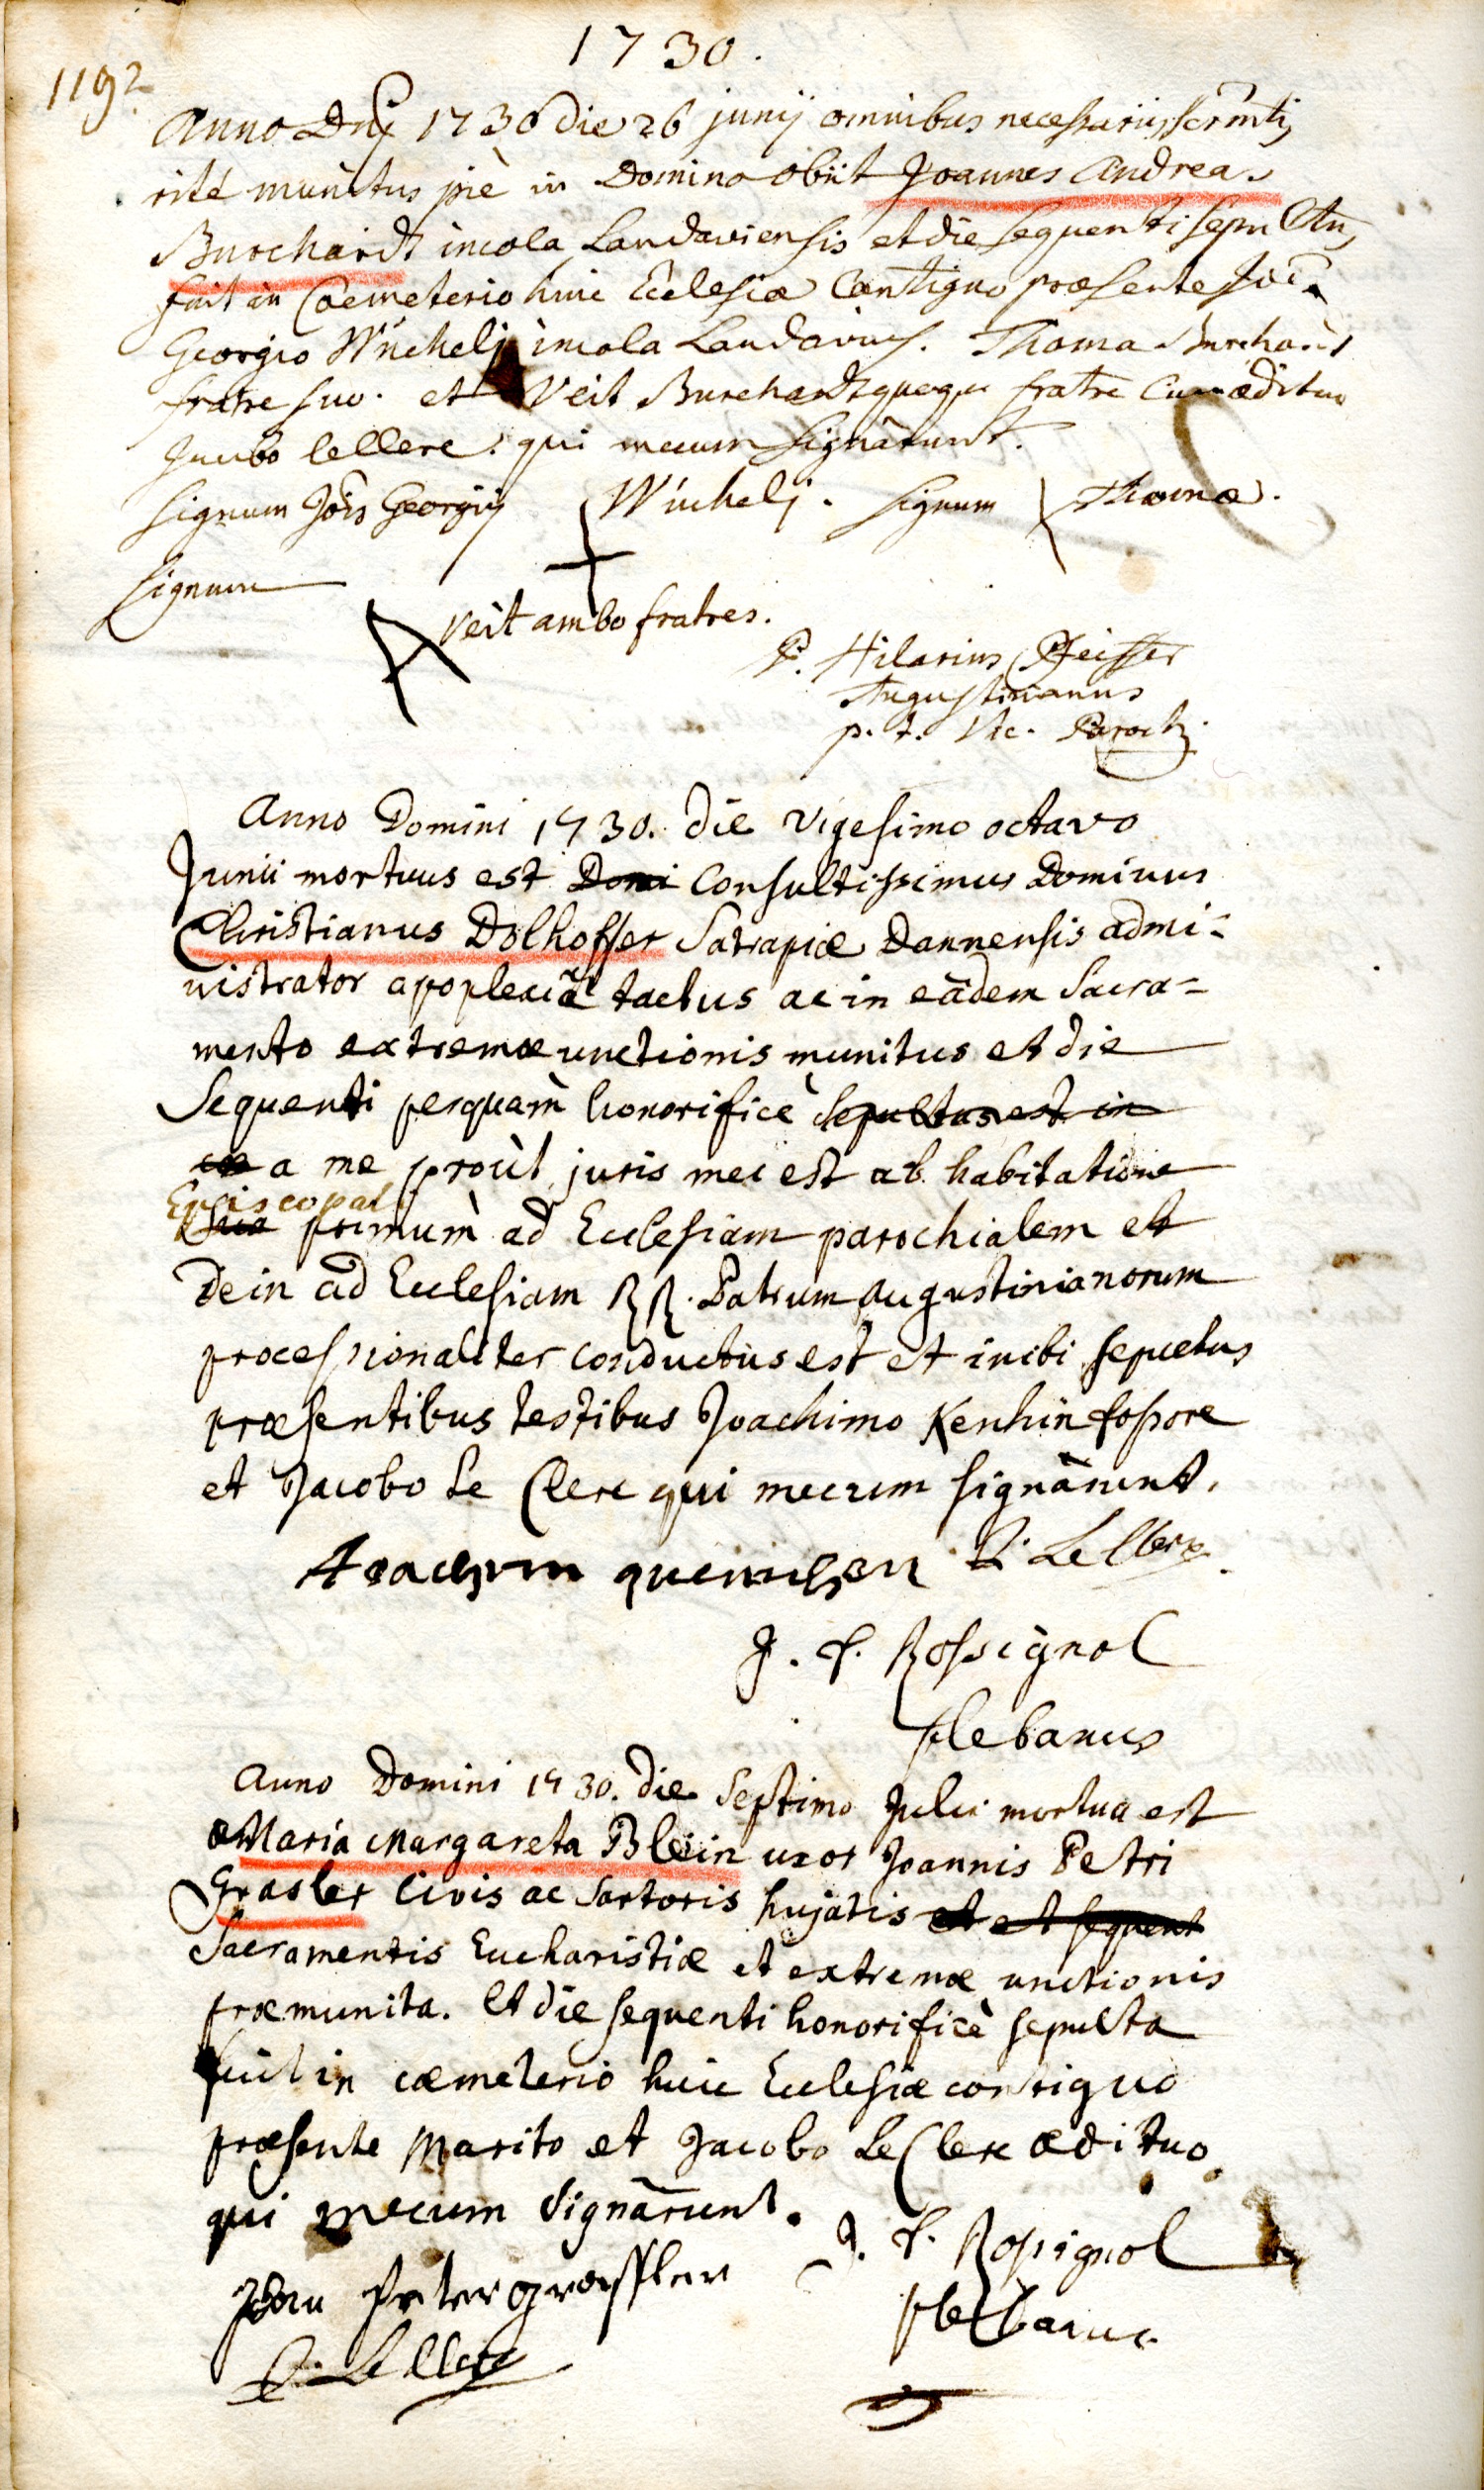 1730.
1192
Anno Dnj 1730 die 26 junij omnibus necessariis scrmtis
rité munitus piè in Domino obiit Joannes Andreas
Burchardt incola Landaviensis et die sequenti sepultus
fuit in Coemeterio huic Ecclesiæ Contiguo præsente Joê
Georgio Wücheli incola Landaviens. Thoma Burchardt
fratre suo. et Veit Burchardt quoque fratre Cum ædituo
Jacobo leClerc. qui mecum Signârunt.
Signum Jôis Georgij Wücheli. Signum Thomæ.
Signum
Veit ambo fratres.
P. Hilarius Pfeiffer
Augustinianus
p. t. Vic. Paroch.
Anno Domini 1730. die vigesimo octavo
Junii mortuus est Domi Consultissimus Dominus
Christianus Dolhoffer Satrapiæ Dannensis admi=
nistrator apoplexiâ tactus ac in eâdem Sacra=
mento extremæ unctionis munitus et die
Sequenti perquàm honorificè Sepultus est in
a me proùt juris mei est ab habitatione
Episcopali
Sua primùm ad Ecclesiam parochialem et
Dein ad Ecclesiam RR. Patrum Augustinianorum
processionaliter conductus est et inibi sepultus
præsentibus testibus Joachimo Kenhin fossore
et Jacobo Le Clerc qui mecum signârunt.
J. LeClerc
J. P. Rossignol
plebanus
Anno Domini 1730. die Septimo Julii mortua est
Maria Margareta Blein uxor Joannis Petri
Grasler Civis ac Sartoris hujatis et et sequent
Sacramentis Eucharistiæ et extremæ unctionis
præmunita. Et die sequenti honorificè sepulta
fuit in cæmeterio huic Ecclesiæ contiguo
præsente Marito et Jacobo LeClerc ædituo
qui mecum Signârunt.
J. P. Rossignol
plebanus
Johan Peter grassler
J. LeClerc